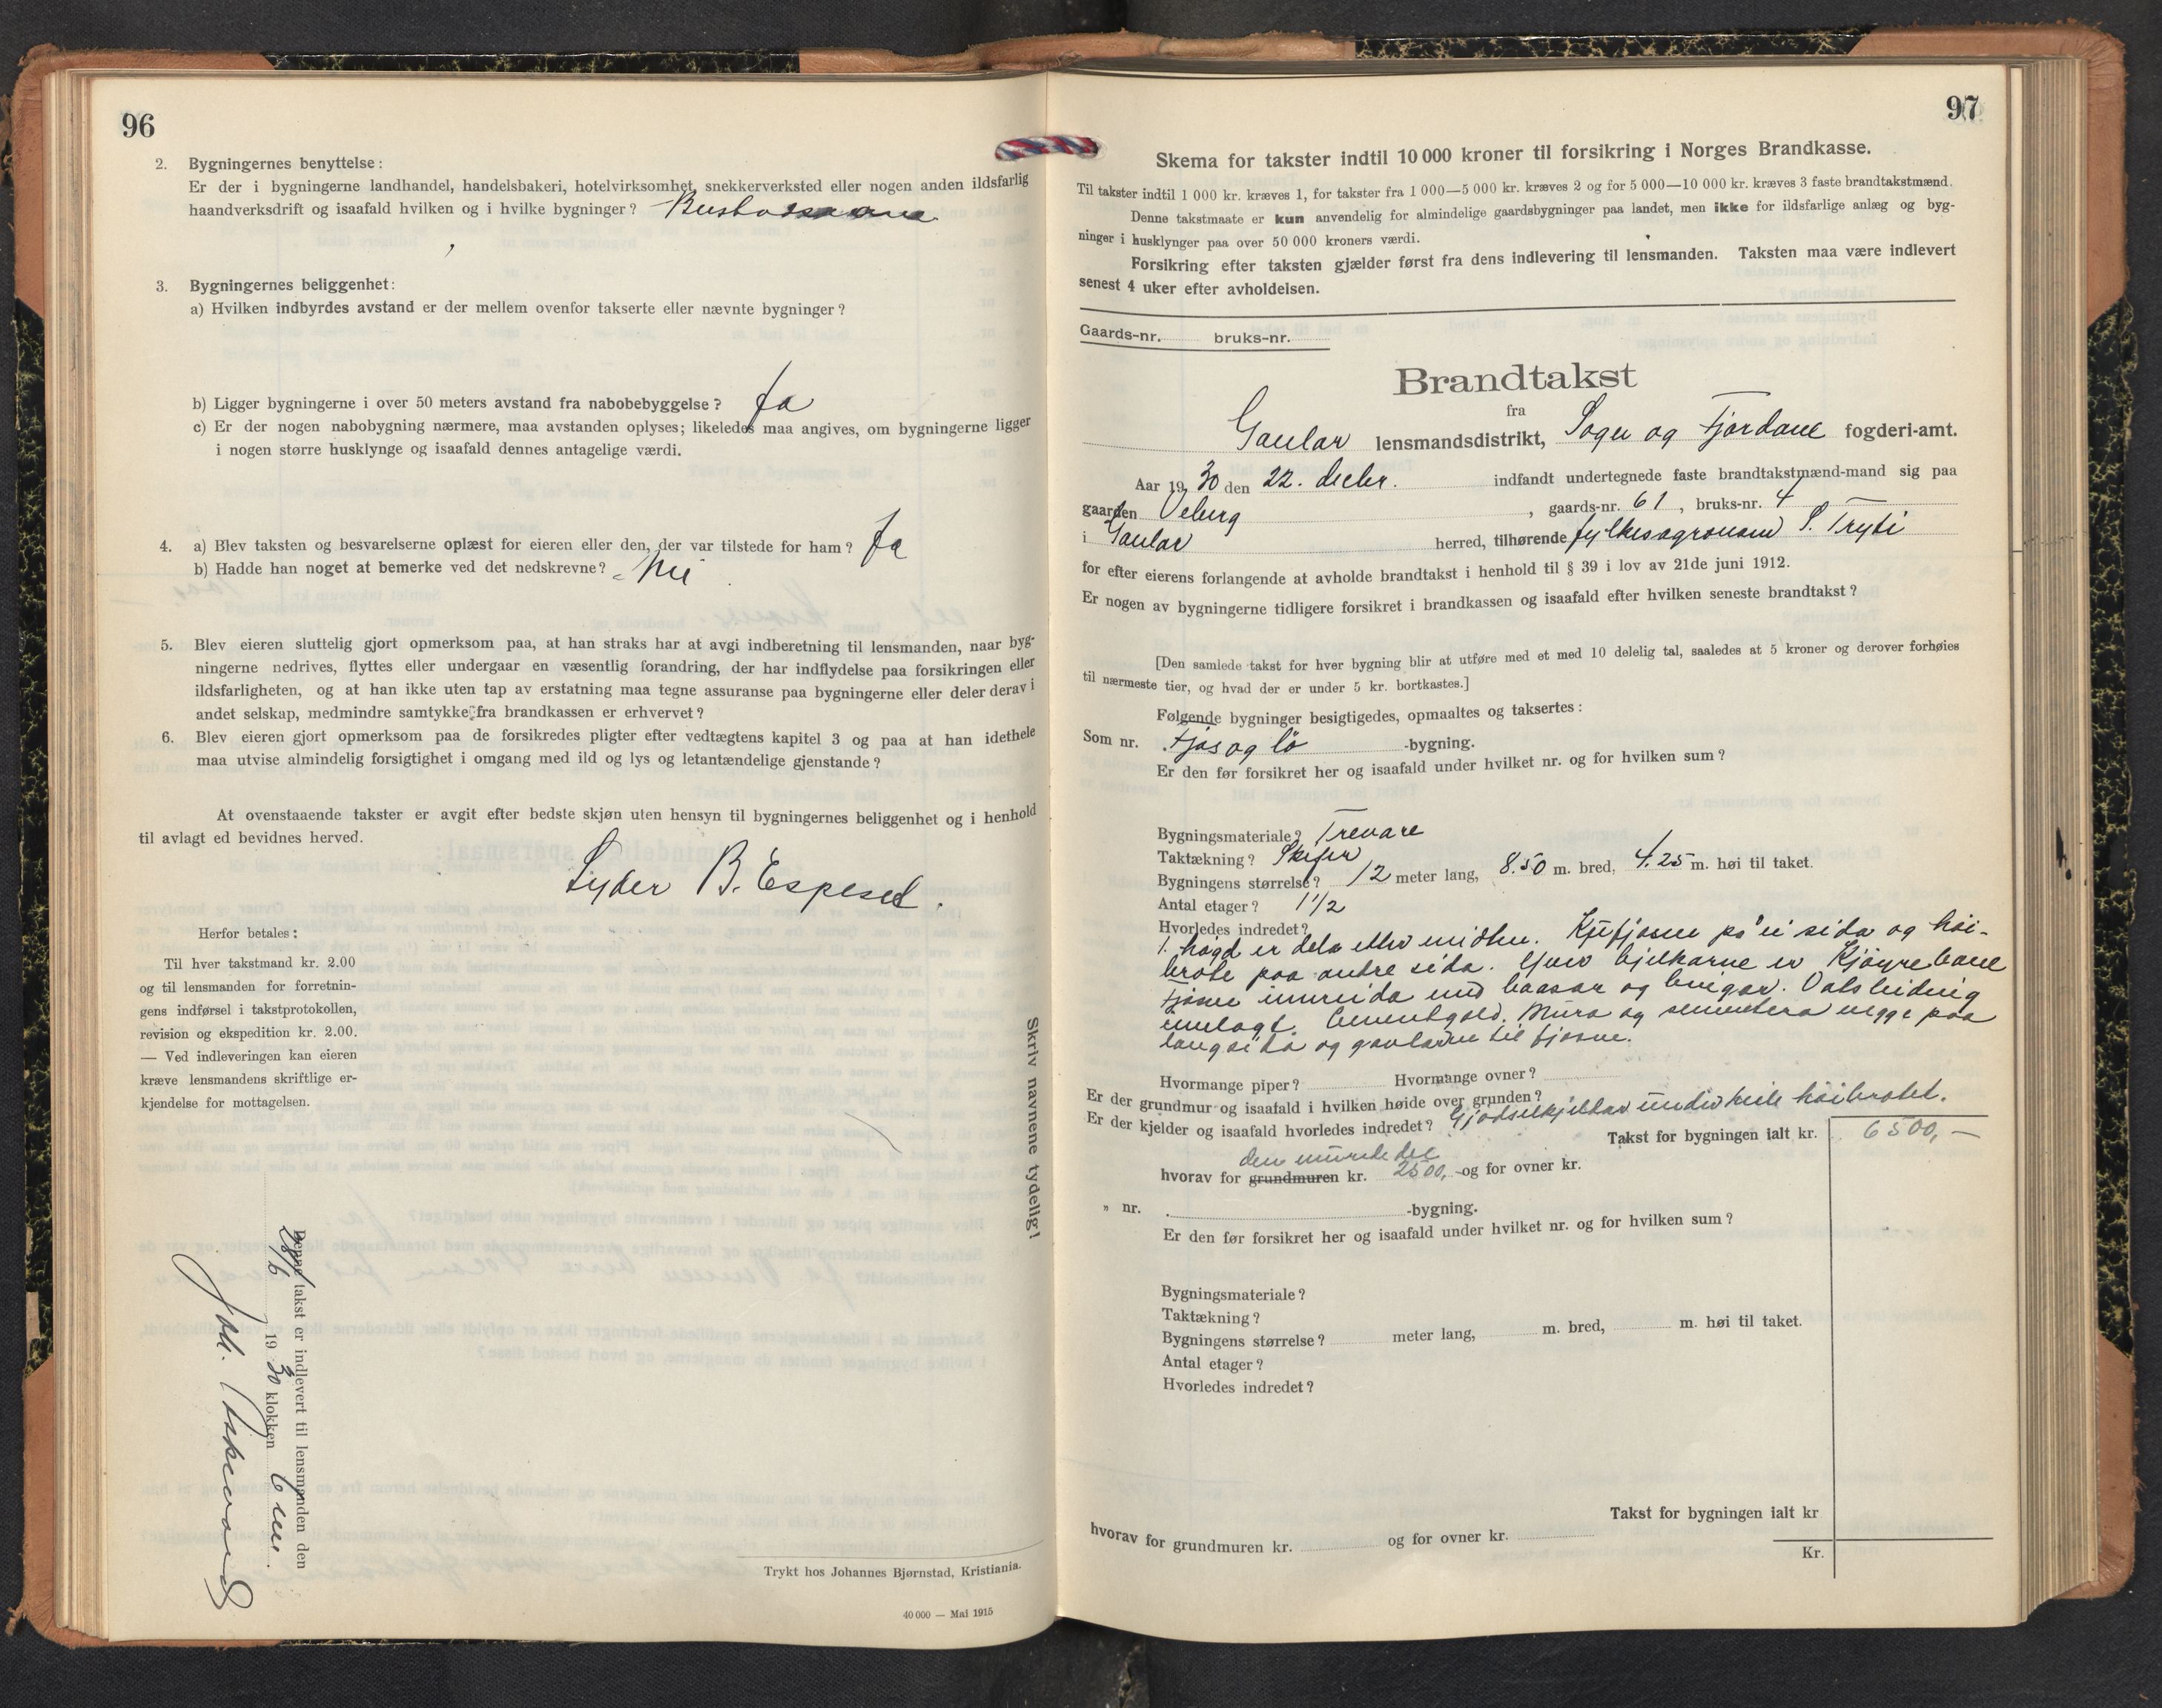 96
2. Bygningernes benyttelse:
Er der i bygningerne landhandel, handelsbakeri, hotelvirksomhet, snekkerverksted eller nogen anden ildsfarlig
haandverksdrift og isaafald hvilken og i hvilke bygninger?
3. Bygningernes beliggenhet:
a) Hvilken indbyrdes avstand er der mellem ovenfor takserte eller nævnte bygninger?
b) Ligger bygningerne i over 50 meters avstand fra nabobebyggelse? Ja
c) Er der nogen nabobygning nærmere, maa avstanden oplyses; likeledes maa angives, om bygningerne ligger
i nogen større husklynge og isaafald dennes antagelige værdi.
4. a) Blev taksten og besvarelserne oplæst for eieren eller den, der var tilstede for ham? Ja
b) Hadde han noget at bemerke ved det nedskrevne? Nei
5. Blev eieren sluttelig gjort opmerksom paa, at han straks har at avgi indberetning til lensmanden, naar byg-
ningerne nedrives, flyttes eller undergaar en væsentlig forandring, der har indflydelse paa forsikringen eller
ildsfarligheten, og at han ikke uten tap av erstatning maa tegne assuranse paa bygningerne eller deler derav i
andet selskap, medmindre samtykke fra brandkassen er erhvervet?
6. Blev eieren gjort opmerksom paa de forsikredes pligter efter vedtægtens kapitel 3 og paa at han idethele
maa utvise almindelig forsigtighet i omgang med ild og lys og letantændelige gjenstande?
At ovenstaaende takster er avgit efter bedste skjøn uten hensyn til bygningernes beliggenhet og i henhold
til avlagt ed bevidnes herved.
Lyder B. Espeset.
Herfor betales:
Til hver takstmand kr. 2.00
og til lensmanden for forretnin-
gens indførsel i takstprotokollen,
revision og ekspedition kr. 2.00.
— Ved indleveringen kan eieren
kræve lensmandens skriftlige er-
kjendelse for mottagelsen.
Skriv navnene tydelig!
Denne takst er indlevert til lensmanden den
1930 klokken 6 em.
Trykt hos Johannes Bjørnstad, Kristiania.
40 000 — Mai 1915
97
Skema for takster indtil 10 000 kroner til forsikring i Norges Brandkasse.
Til takster indtil 1 000 kr. kræves 1, for takster fra 1 000—5 000 kr. kræves 2 og for 5 000—10 000 kr. kræves 3 faste brandtakstmænd.
Denne takstmaate er kun anvendelig for almindelige gaardsbygninger paa landet, men ikke for ildsfarlige anlæg og byg-
ninger i husklynger paa over 50 000 kroners værdi.
Forsikring efter taksten gjælder først fra dens indlevering til lensmanden. Taksten maa være indlevert
senest 4 uker efter avholdelsen.
Gaards-nr. bruks-nr.
Brandtakst
fra
Gaular lensmandsdistrikt, Sogn og Fjordane fogderi-amt.
Aar 1930 den 22. decbr. indfandt undertegnede faste brandtakstmænd-mand sig paa
gaarden Veberg, gaards-nr. 61, bruks-nr. 4
i Gaular herred, tilhørende fylkesagronom S. Tryti
for efter eierens forlangende at avholde brandtakst i henhold til § 39 i lov av 21de juni 1912.
Er nogen av bygningerne tidligere forsikret i brandkassen og isaafald efter hvilken seneste brandtakst?
[Den samlede takst for hver bygning blir at utføre med et med 10 delelig tal, saaledes at 5 kroner og derover forhøies
til nærmeste tier, og hvad der er under 5 kr. bortkastes.]
Følgende bygninger besigtigedes, opmaaltes og taksertes:
Som nr. Fjøs og lö -bygning.
Er den før forsikret her og isaafald under hvilket nr. og for hvilken sum?
Bygningsmateriale? Trevare
Taktækning? Skifer
Bygningens størrelse? 12 meter lang, 8.50 m. bred, 4.25 m. høi til taket.
Antal etager? 1 1/2
Hvorledes indredet?
1. høgd er delt etter midten. Kufjøsen på ei sida og høi-
brote paa andre sida. Yver bjelkarne er Kjøyrebane
Fjøsen innreida med baasar og bingar. Vatsleidnig
innlagt. Cementgolv. Mura og sementera vegge paa
langsida og gavlarne til fjøsne.
Hvormange piper? Hvormange ovner?
Er der grundmur og isaafald i hvilken høide over grunden?
Er der kjelder og isaafald hvorledes indredet? Gjødselkjellar under heile høibrotet.
Takst for bygningen ialt kr. 6500,—
den murede del
hvorav for grundmuren kr. 2500,- og for ovner kr.
„ nr. -bygning.
Er den før forsikret her og isaafald under hvilket nr. og for hvilken sum?
Bygningsmateriale?
Taktækning?
Bygningens størrelse? meter lang, m. bred, m. høi til taket.
Antal etager?
Hvorledes indredet?
Takst for bygningen ialt kr
hvorav for grundmuren kr. og for ovner kr.
Kr.